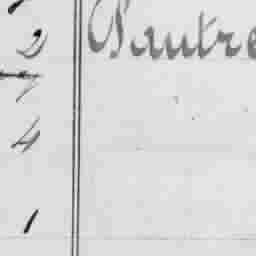 2 Pautre
7
4
1